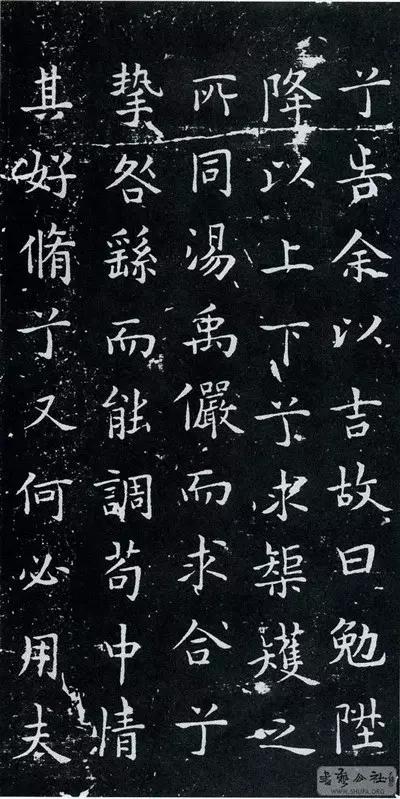 兮告余以吉故曰勉陞
降以上下兮求榘矱之
所同湯禹儼而求合兮
摯咎繇而能調苟中情
其好脩兮又何必用夫
书艺公社
WWW.SHUFA.ORG